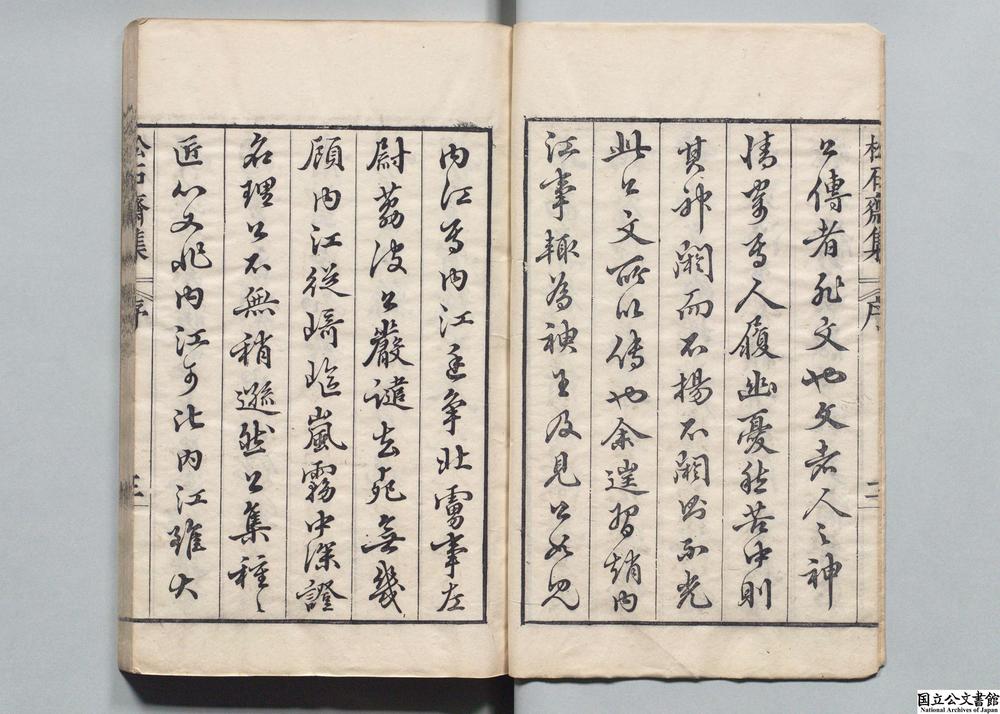 松石齋集 序 二
公傳者非文也文者人之神
情焉人履幽憂愁苦中則
其神閼而不揚不閼則不光
此公文所以傳也余習趙内
江事輒為神王及見公如見
内江焉内江廷爭北虜事左
尉荔波公嚴譴去死無幾
顧内江從崎嶇嵐霧中深證
名理公不無稍遜然公集種〻
匠心又非内江可比内江雖大
松石齋集 序 三
国立公文書館
National Archives of Japan